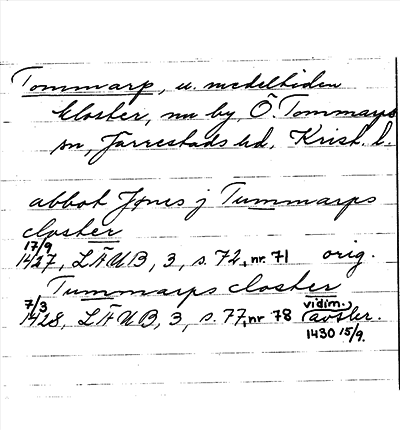 Tommarp, u. medeltiden
kloster, nu by, Ö. Tommarps
sn, Järrestads hd, Krist. l.
abbot Jønes j Tummarps
closter
17/9
1427, LÄUB, 3, s. 72, nr. 71 orig.
Tummarps closter
7/3
1428, LÄUB, 3, s. 77, nr 78 (vidim.)
avskr.
1430 15/9.